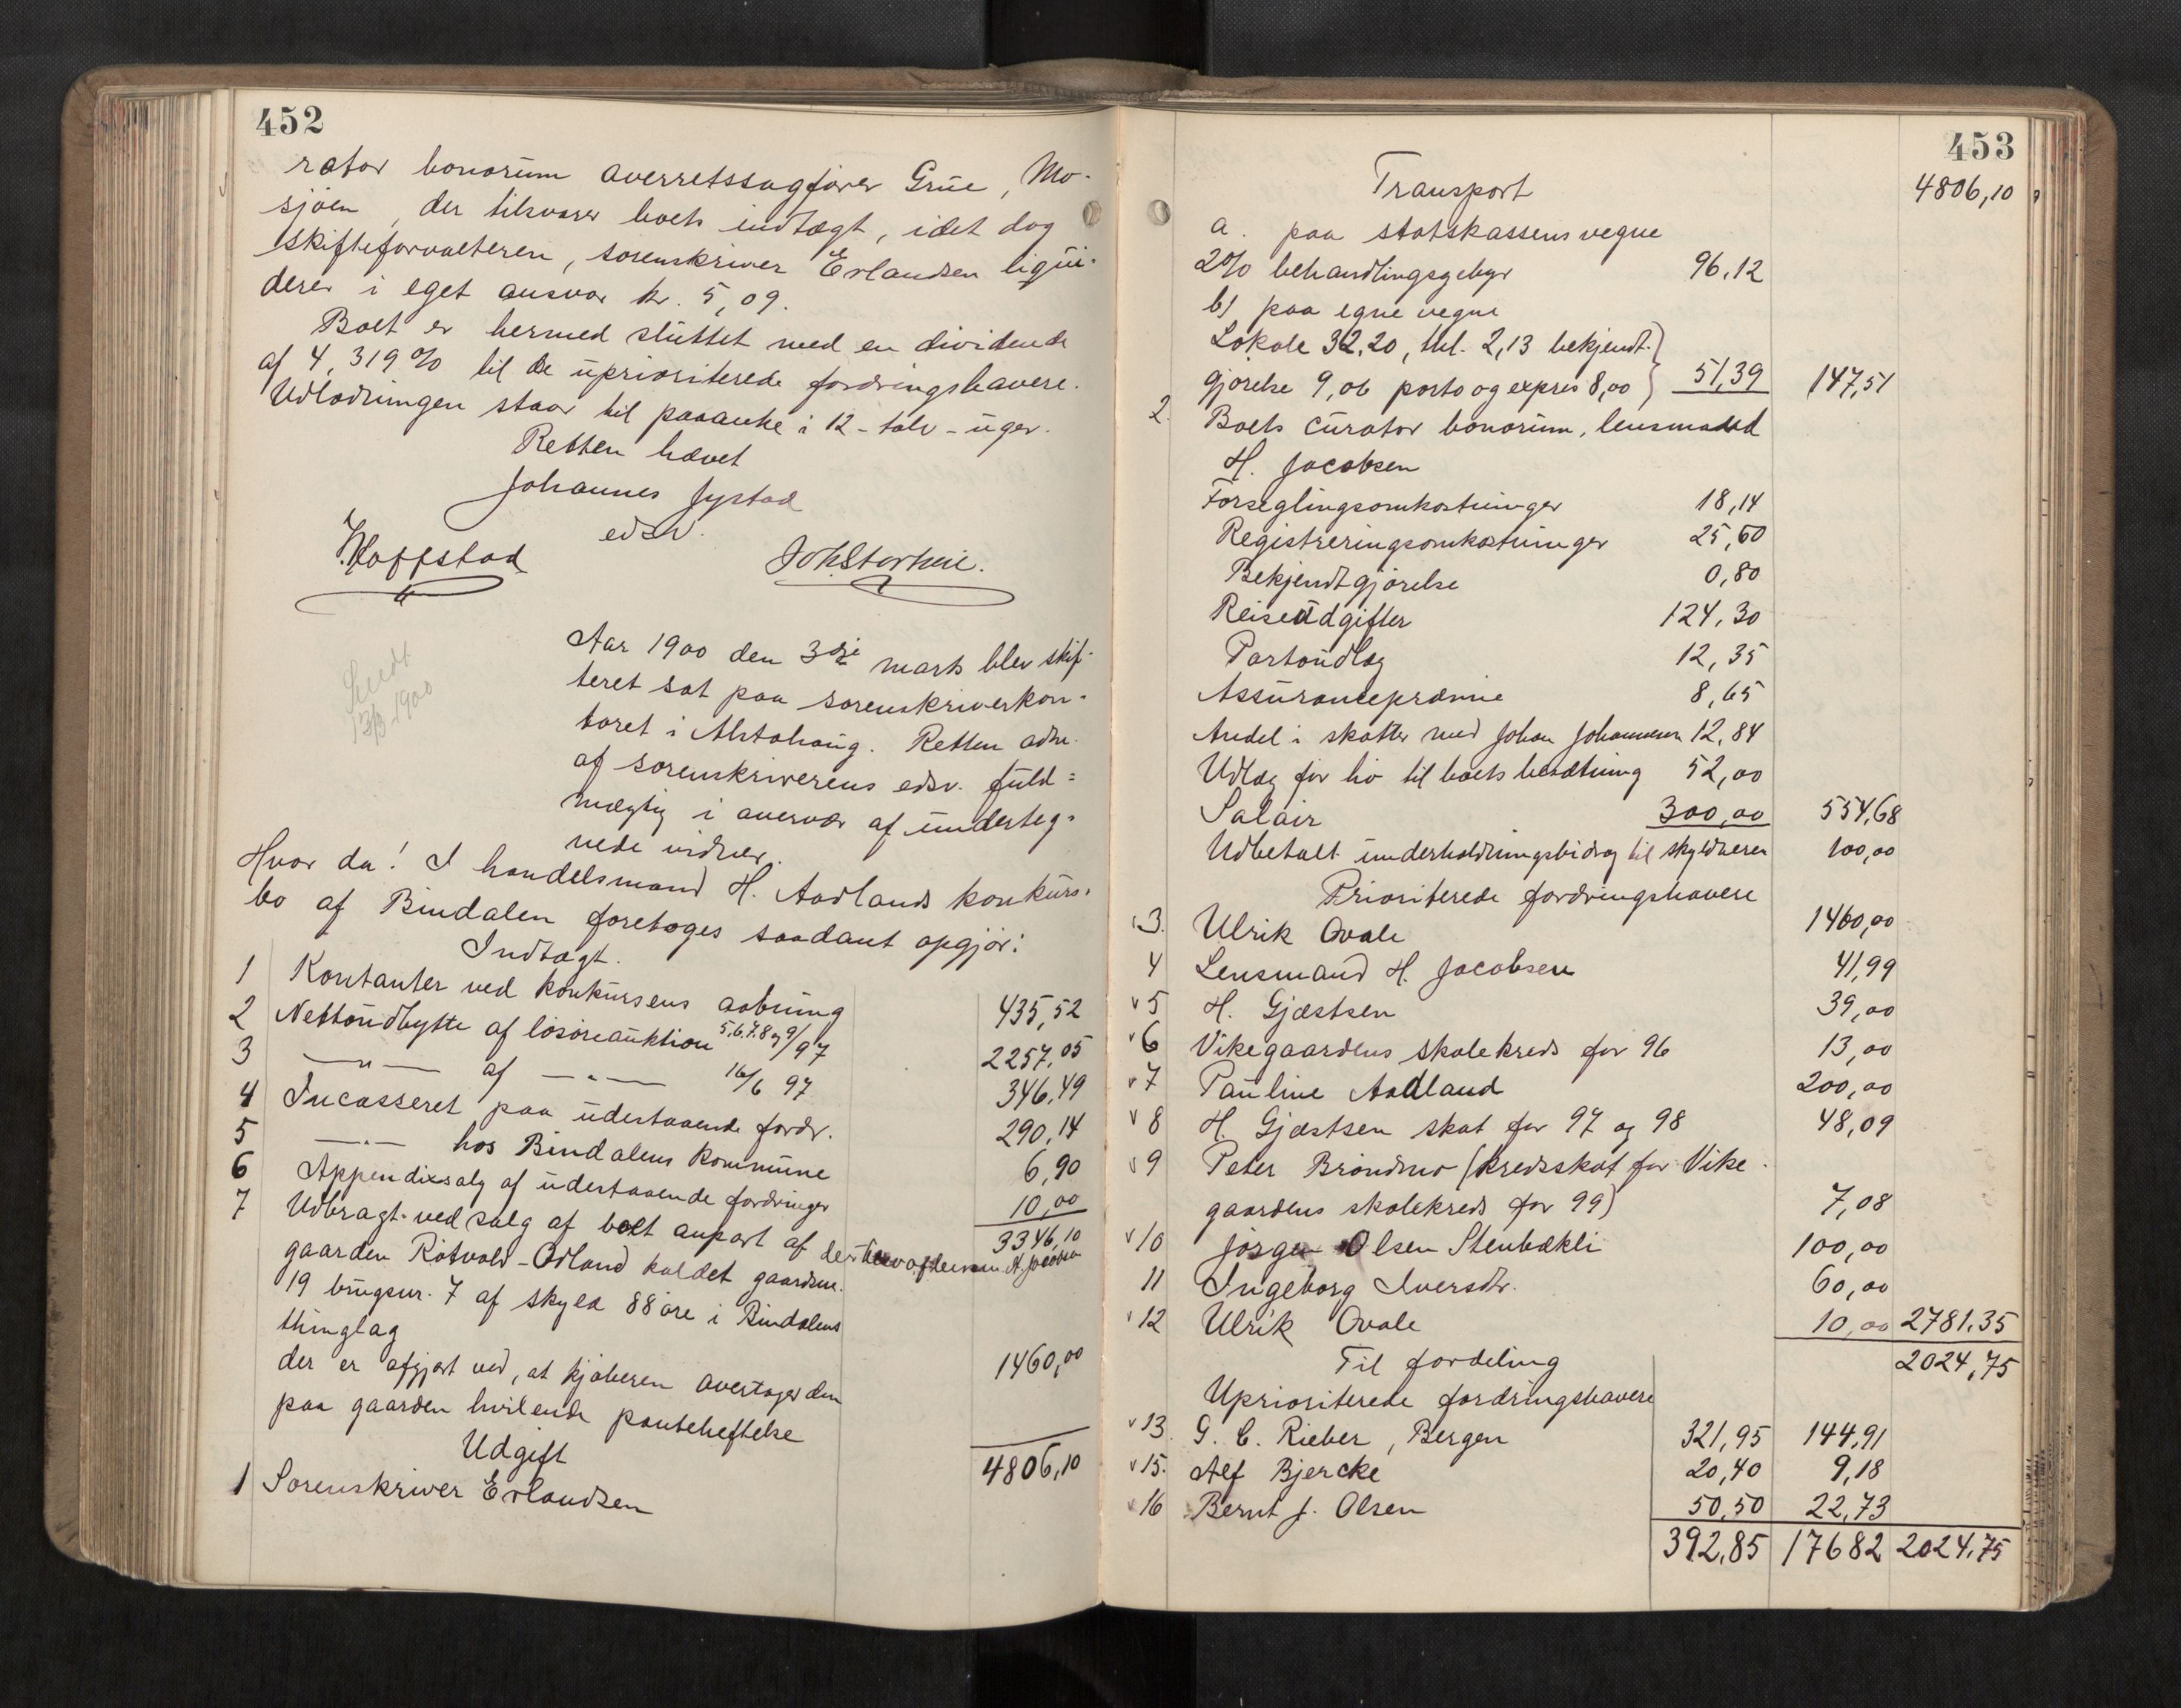 452
rator bonorum overretssagfører Grue, Mo-
sjøen, der tilsvarer boets indtægt, idet dog
skifteforvalteren, sorenskriver Erlandsen liqui-
derer i eget ansvar kr. 5,09.
Boet er hermed sluttet med en dividende
af 4,319 % til de uprioriterede fordringshavere.
Udlodningen staar til paaanke i 12 - tolv - uger.
Retten hævet
Johannes Jystad
edsv.
Hoffstad Joh Storheie.
13/3 1900
Aar 1900 den 3die marts blev skif-
teret sat paa sorenskriverkon-
toret i Alstahaug. Retten adm.
af sorenskriverens edsv. fuld=
mægtig i overvær af underteg-
nede vidner.
Hvor da! I handelsmand H. Aadlands konkurs-
bo af Bindalen foretoges saadant opgjør:
Indtægt.
1 Kontanter ved konkursens aabning 435,52
2 Nettoudbytte af løsøreauktion 5,6,7,8 og 9/97 2257,05
3 —"— af —"— 16/6 97 346,49
4 Incasseret paa udestaaende fordr. 290,14
5 —"— hos Bindalens kommune 6,90
6 Appendixsalg af udestaaende fordringer 10,00
3346,10
7 Udbragt ved salg af boet anpart af den
gaarden Røtvold-Odland kaldet gaardsnr.
19 brugsnr. 7 af skyld 88 øre i Bindalens
thinglag 1460,00
der er afgjort ved, at kjøberen overtager den
paa gaarden hvilende panteheftelse
4806,10
Udgift
1 Sorenskriver Erlandsen
453
Transport 4806,10
a. paa statskassens vegne
2% behandlingsgebyr 96,12
b) paa egne vegne
Lokale 32,20, thl. 2,13 bekjendt-
gjørelse 9,06 porto og expres 8,00 51,39 147,51
2. Boets curator bonorum, lensmand
H. Jacobsen
Forseglingsomkostninger 18,14
Registreringsomkostninger 25,60
Bekjendtgjørelse 0,80
Reiseudgifter 124,30
Portoudlæg 12,35
Assurancepræmie 8,65
Andel i skatter med Johan Johannesen 12,84
Udlæg for hø til boets besætning 52,00
Salair 300,00 554,68
Udbetalt underholdningsbidrag til skyldneren 100,00
Prioriterede fordringshavere
3. Ulrik Qvale 1460,00
4 Lensmand H. Jacobsen 41,99
v 5 H. Gjæstsen 39,00
v 6 Vikegaardens skolekreds for 96 13,00
v 7 Pauline Aadland 200,00
v 8 H. Gjæstsen skat for 97 og 98 48,09
v 9 Peter Brøndmo (kredsskat for Vike-
gaardens skolekreds for 99) 7,08
v 10 Jørgen Olsen Stenbækli 100,00
11 Ingeborg Iversdr. 60,00
v 12 Ulrik Qvale 10,00 2781,35
Til fordeling 2024,75
Uprioriterede fordringshavere
v 13. G. C. Rieber, Bergen 321,95 144,91
v 15. Alf Bjercke 20,40 9,18
v 16 Bernt J. Olsen 50,50 22,73
392,85 17682 2024,75